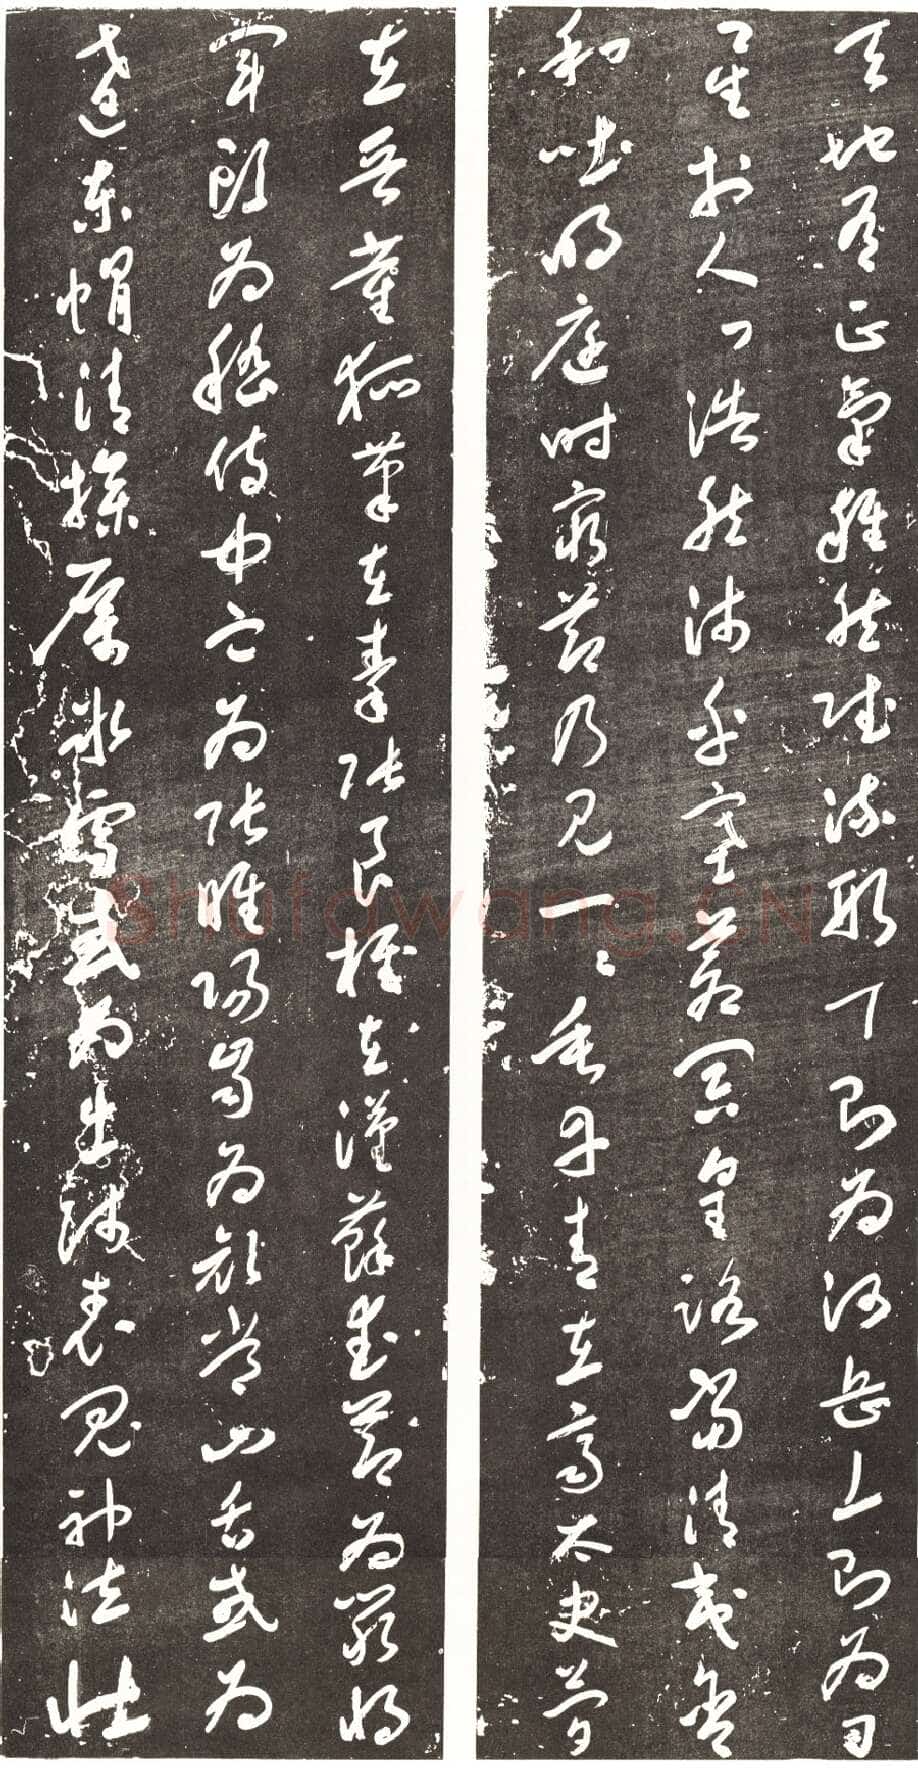 天地有正氣雜然賦流形下則為河岳上則為日
星於人曰浩然沛乎塞蒼冥皇路當清夷含
和吐明庭時窮節乃見一〻垂丹青在齊太史簡
在晉董狐筆在秦張良椎在漢蘇武節為嚴將
軍頭為嵇侍中血為張睢陽齒為顏常山舌或為
遼東帽清操厲冰雪或為出師表鬼神泣壯
Shufawang.CN